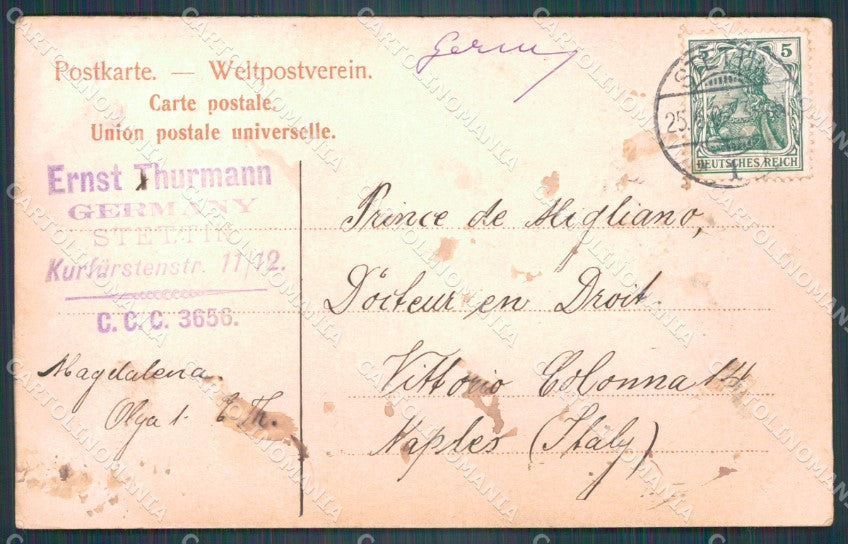 Germ
Postkarte. — Weltpostverein.
Carte postale.
Union postale universelle.
5 5
STETTIN
25.
1
DEUTSCHES REICH
Ernst Thurmann
GERMANY
STETTIN
Kurfürstenstr. 11/12.
C. C. C. 3656.
Prince de Migliano,
Docteur en Droit.
Vittorio Colonna 14
Naples (Italy)
Magdalena.
Olga 1. Th.
CARTOLINOMANIA